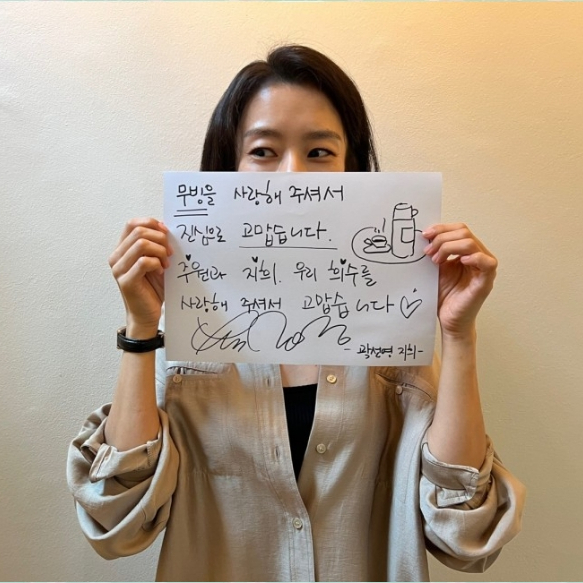 무빙을 사랑해 주셔서
진심으로 고맙습니다.
주원과 지희. 우리 희수를
사랑해 주셔서 고맙습니다♡
-곽선영 지희-